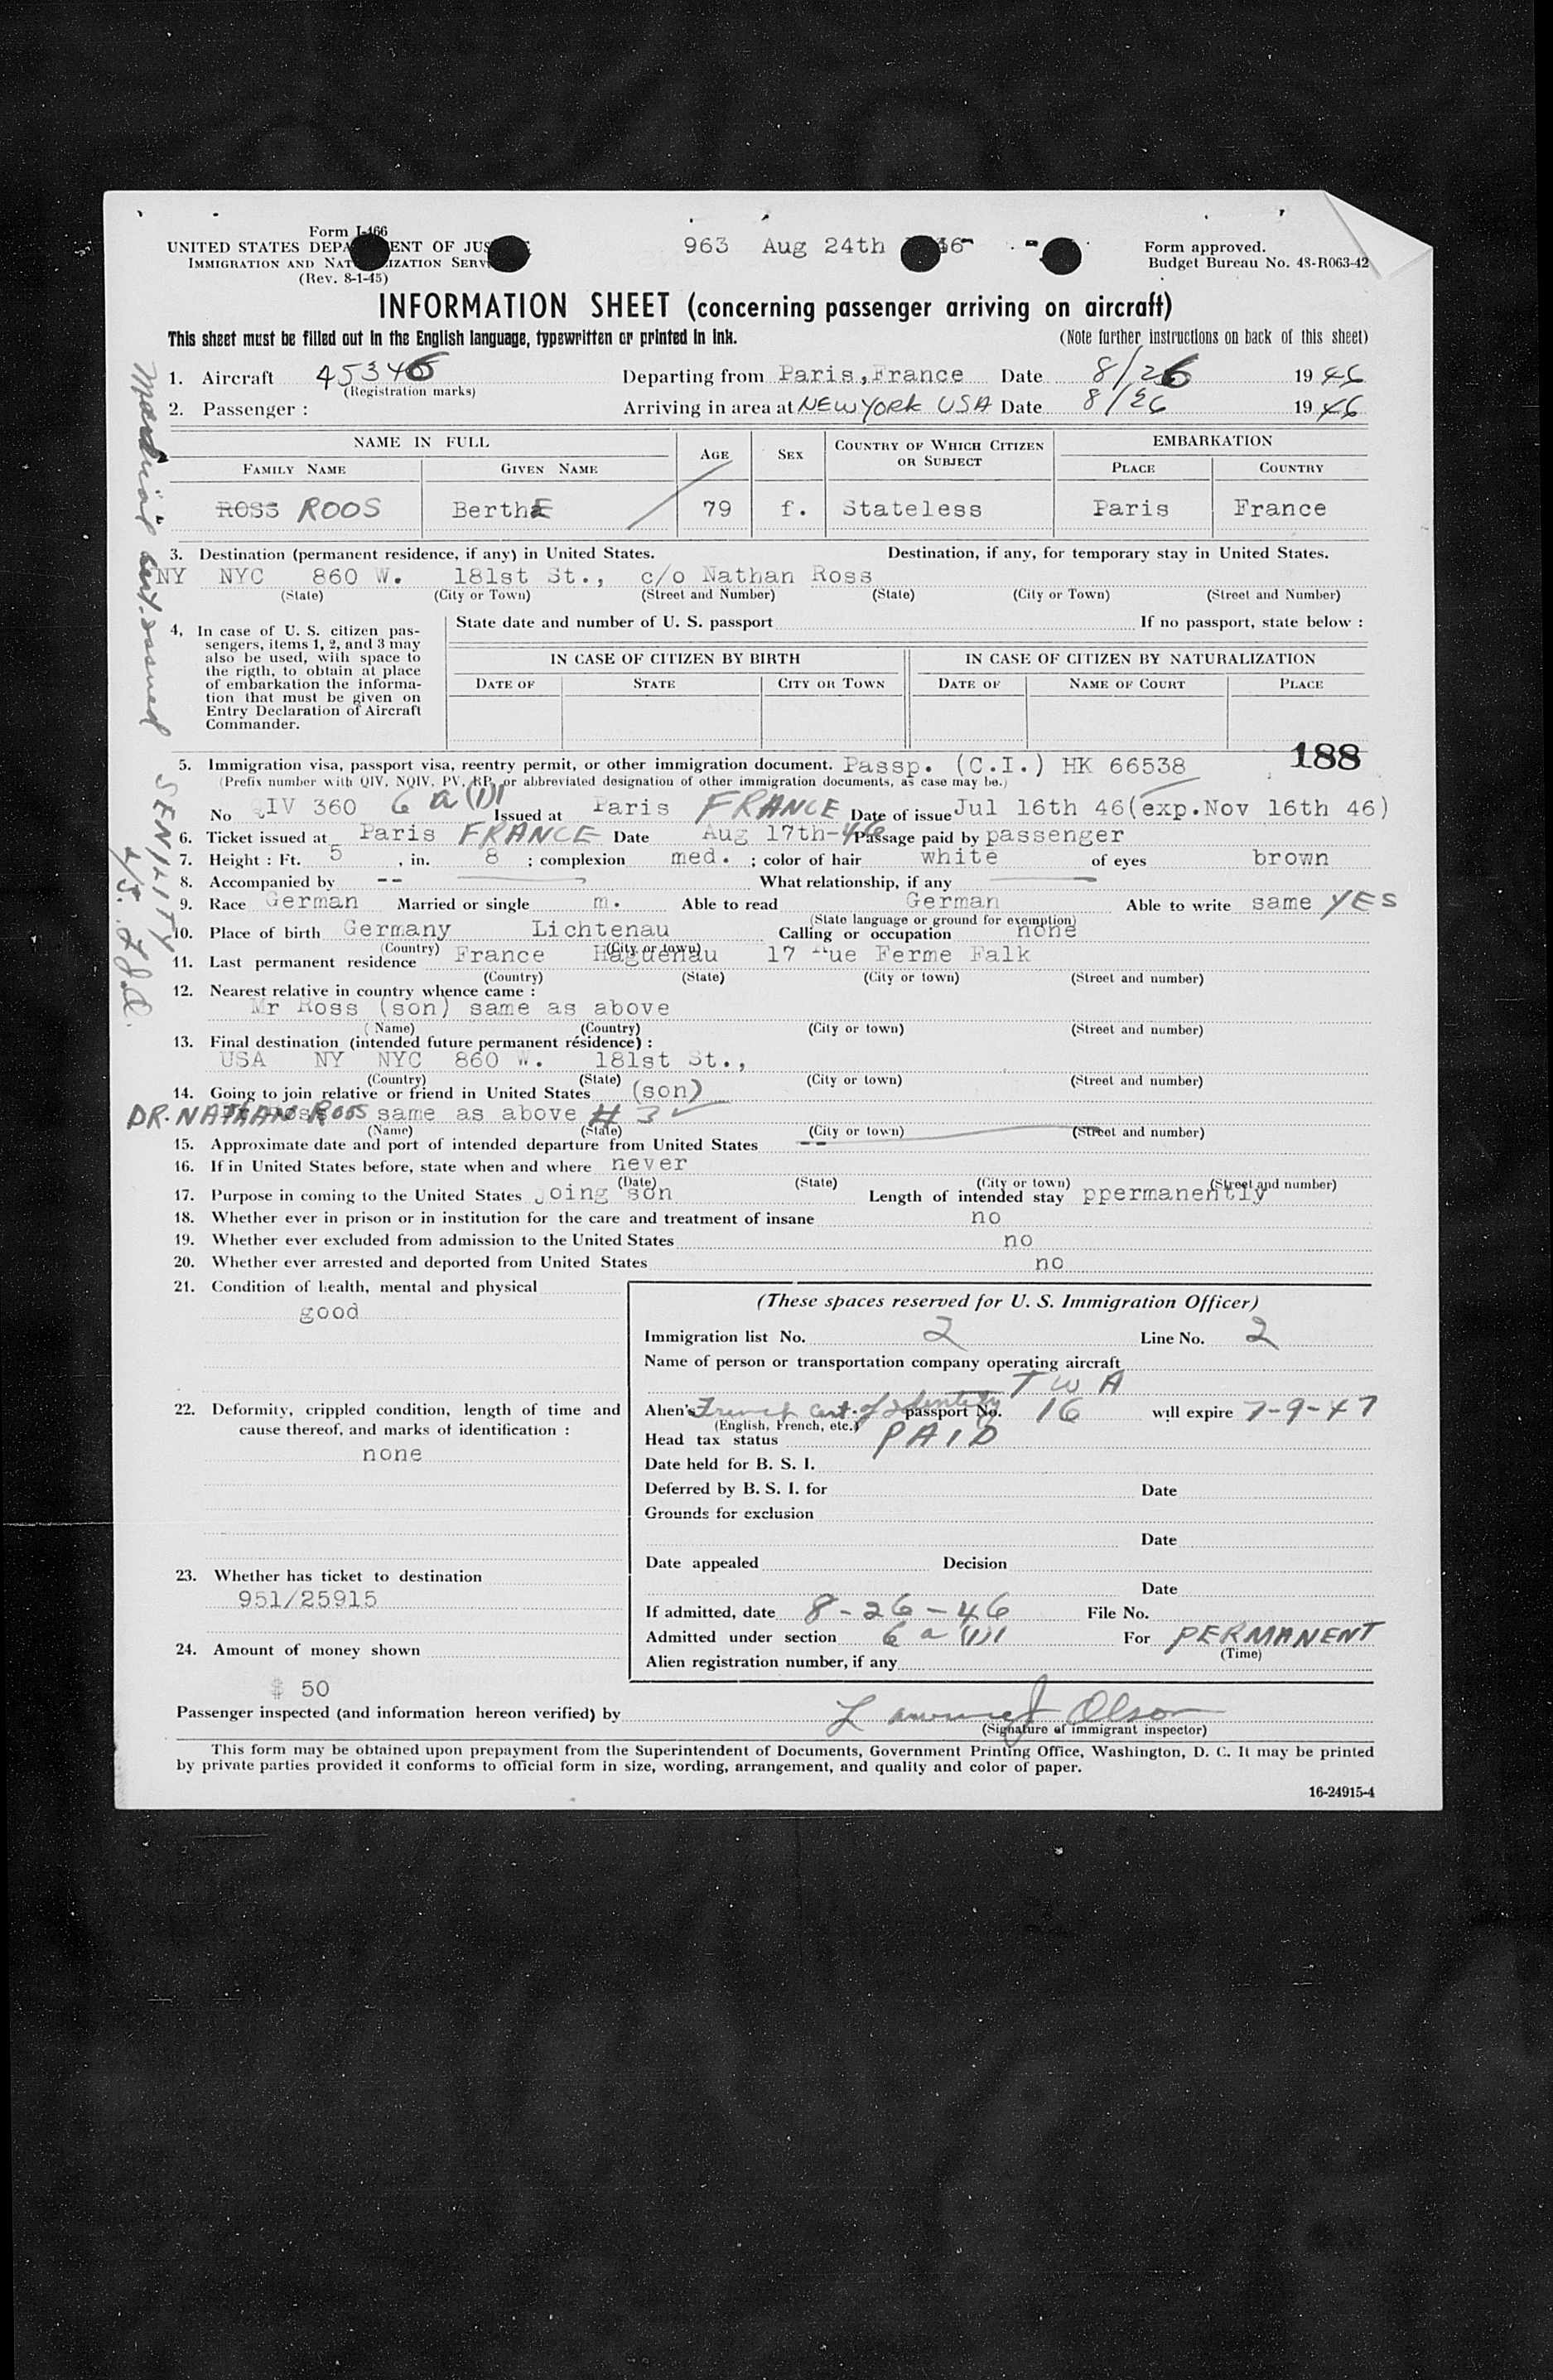 Form I-466
UNITED STATES DEPA ENT OF JUS
IMMIGRATION AND NAT IZATION SERV
(Rev. 8-1-45)
963 Aug 24th 46
Form approved.
Budget Bureau No. 48-R063-42
INFORMATION SHEET (concerning passenger arriving on aircraft)
This sheet must be filled out in the English language, typewritten or printed in ink. (Note further instructions on back of this sheet)
1. Aircraft 45346 Departing from Paris, France Date 8/26 1946
(Registration marks)
2. Passenger : Arriving in area at NEW YORK USA Date 8/26 1946
NAME IN FULL AGE SEX COUNTRY OF WHICH CITIZEN OR SUBJECT EMBARKATION
FAMILY NAME GIVEN NAME PLACE COUNTRY
ROSS ROOS BerthE 79 f. Stateless Paris France
3. Destination (permanent residence, if any) in United States. Destination, if any, for temporary stay in United States.
NY NYC 860 W. 181st St., c/o Nathan Ross
(State) (City or Town) (Street and Number) (State) (City or Town) (Street and Number)
4, In case of U. S. citizen pas-
sengers, items 1, 2, and 3 may
also be used, with space to
the rigth, to obtain at place
of embarkation the informa-
tion that must be given on
Entry Declaration of Aircraft
Commander.
State date and number of U. S. passport If no passport, state below :
IN CASE OF CITIZEN BY BIRTH IN CASE OF CITIZEN BY NATURALIZATION
DATE OF STATE CITY OR TOWN DATE OF NAME OF COURT PLACE
188
5. Immigration visa, passport visa, reentry permit, or other immigration document. Passp. (C.I.) HK 66538
(Prefix number with QIV, NQIV, PV, RP, or abbreviated designation of other immigration documents, as case may be.)
No QIV 360 6 a (1)1 Issued at Paris FRANCE Date of issue Jul 16th 46(exp.Nov 16th 46)
6. Ticket issued at Paris FRANCE Date Aug 17th-46 Passage paid by passenger
7. Height : Ft. 5 , in. 8 ; complexion med. ; color of hair white of eyes brown
8. Accompanied by -- What relationship, if any
9. Race German Married or single m. Able to read German Able to write same YES
(State language or ground for exemption)
10. Place of birth Germany Lichtenau Calling or occupation none
(Country) (City or town)
11. Last permanent residence France Haguenau 17 Rue Ferme Falk
(Country) (State) (City or town) (Street and number)
12. Nearest relative in country whence came :
Mr Ross (son) same as above
(Name) (Country) (City or town) (Street and number)
13. Final destination (intended future permanent résidence) :
USA NY NYC 860 W. 181st St.,
(Country) (State) (City or town) (Street and number)
14. Going to join relative or friend in United States (son)
DR. NATHAN ROOS same as above H 3
(Name) (State) (City or town) (Street and number)
15. Approximate date and port of intended departure from United States --
16. If in United States before, state when and where never
(Date) (State) (City or town) (Street and number)
17. Purpose in coming to the United States joing son Length of intended stay ppermanently
18. Whether ever in prison or in institution for the care and treatment of insane no
19. Whether ever excluded from admission to the United States no
20. Whether ever arrested and deported from United States no
21. Condition of health, mental and physical
good
22. Deformity, crippled condition, length of time and
cause thereof, and marks of identification :
none
23. Whether has ticket to destination
951/25915
24. Amount of money shown
$ 50
(These spaces reserved for U. S. Immigration Officer)
Immigration list No. 2 Line No. 2
Name of person or transportation company operating aircraft
TWA
Alien's French Cert. of Identity passport No. 16 will expire 7-9-47
(English, French, etc.)
Head tax status PAID
Date held for B. S. I.
Deferred by B. S. I. for Date
Grounds for exclusion
Date
Date appealed Decision
Date
If admitted, date 8-26-46 File No.
Admitted under section 6 a (1)1 For PERMANENT
(Time)
Alien registration number, if any
Passenger inspected (and information hereon verified) by Olson
(Signature of immigrant inspector)
This form may be obtained upon prepayment from the Superintendent of Documents, Government Printing Office, Washington, D. C. It may be printed
by private parties provided it conforms to official form in size, wording, arrangement, and quality and color of paper.
16-24915-4
Medical Cert. issued
SENILITY